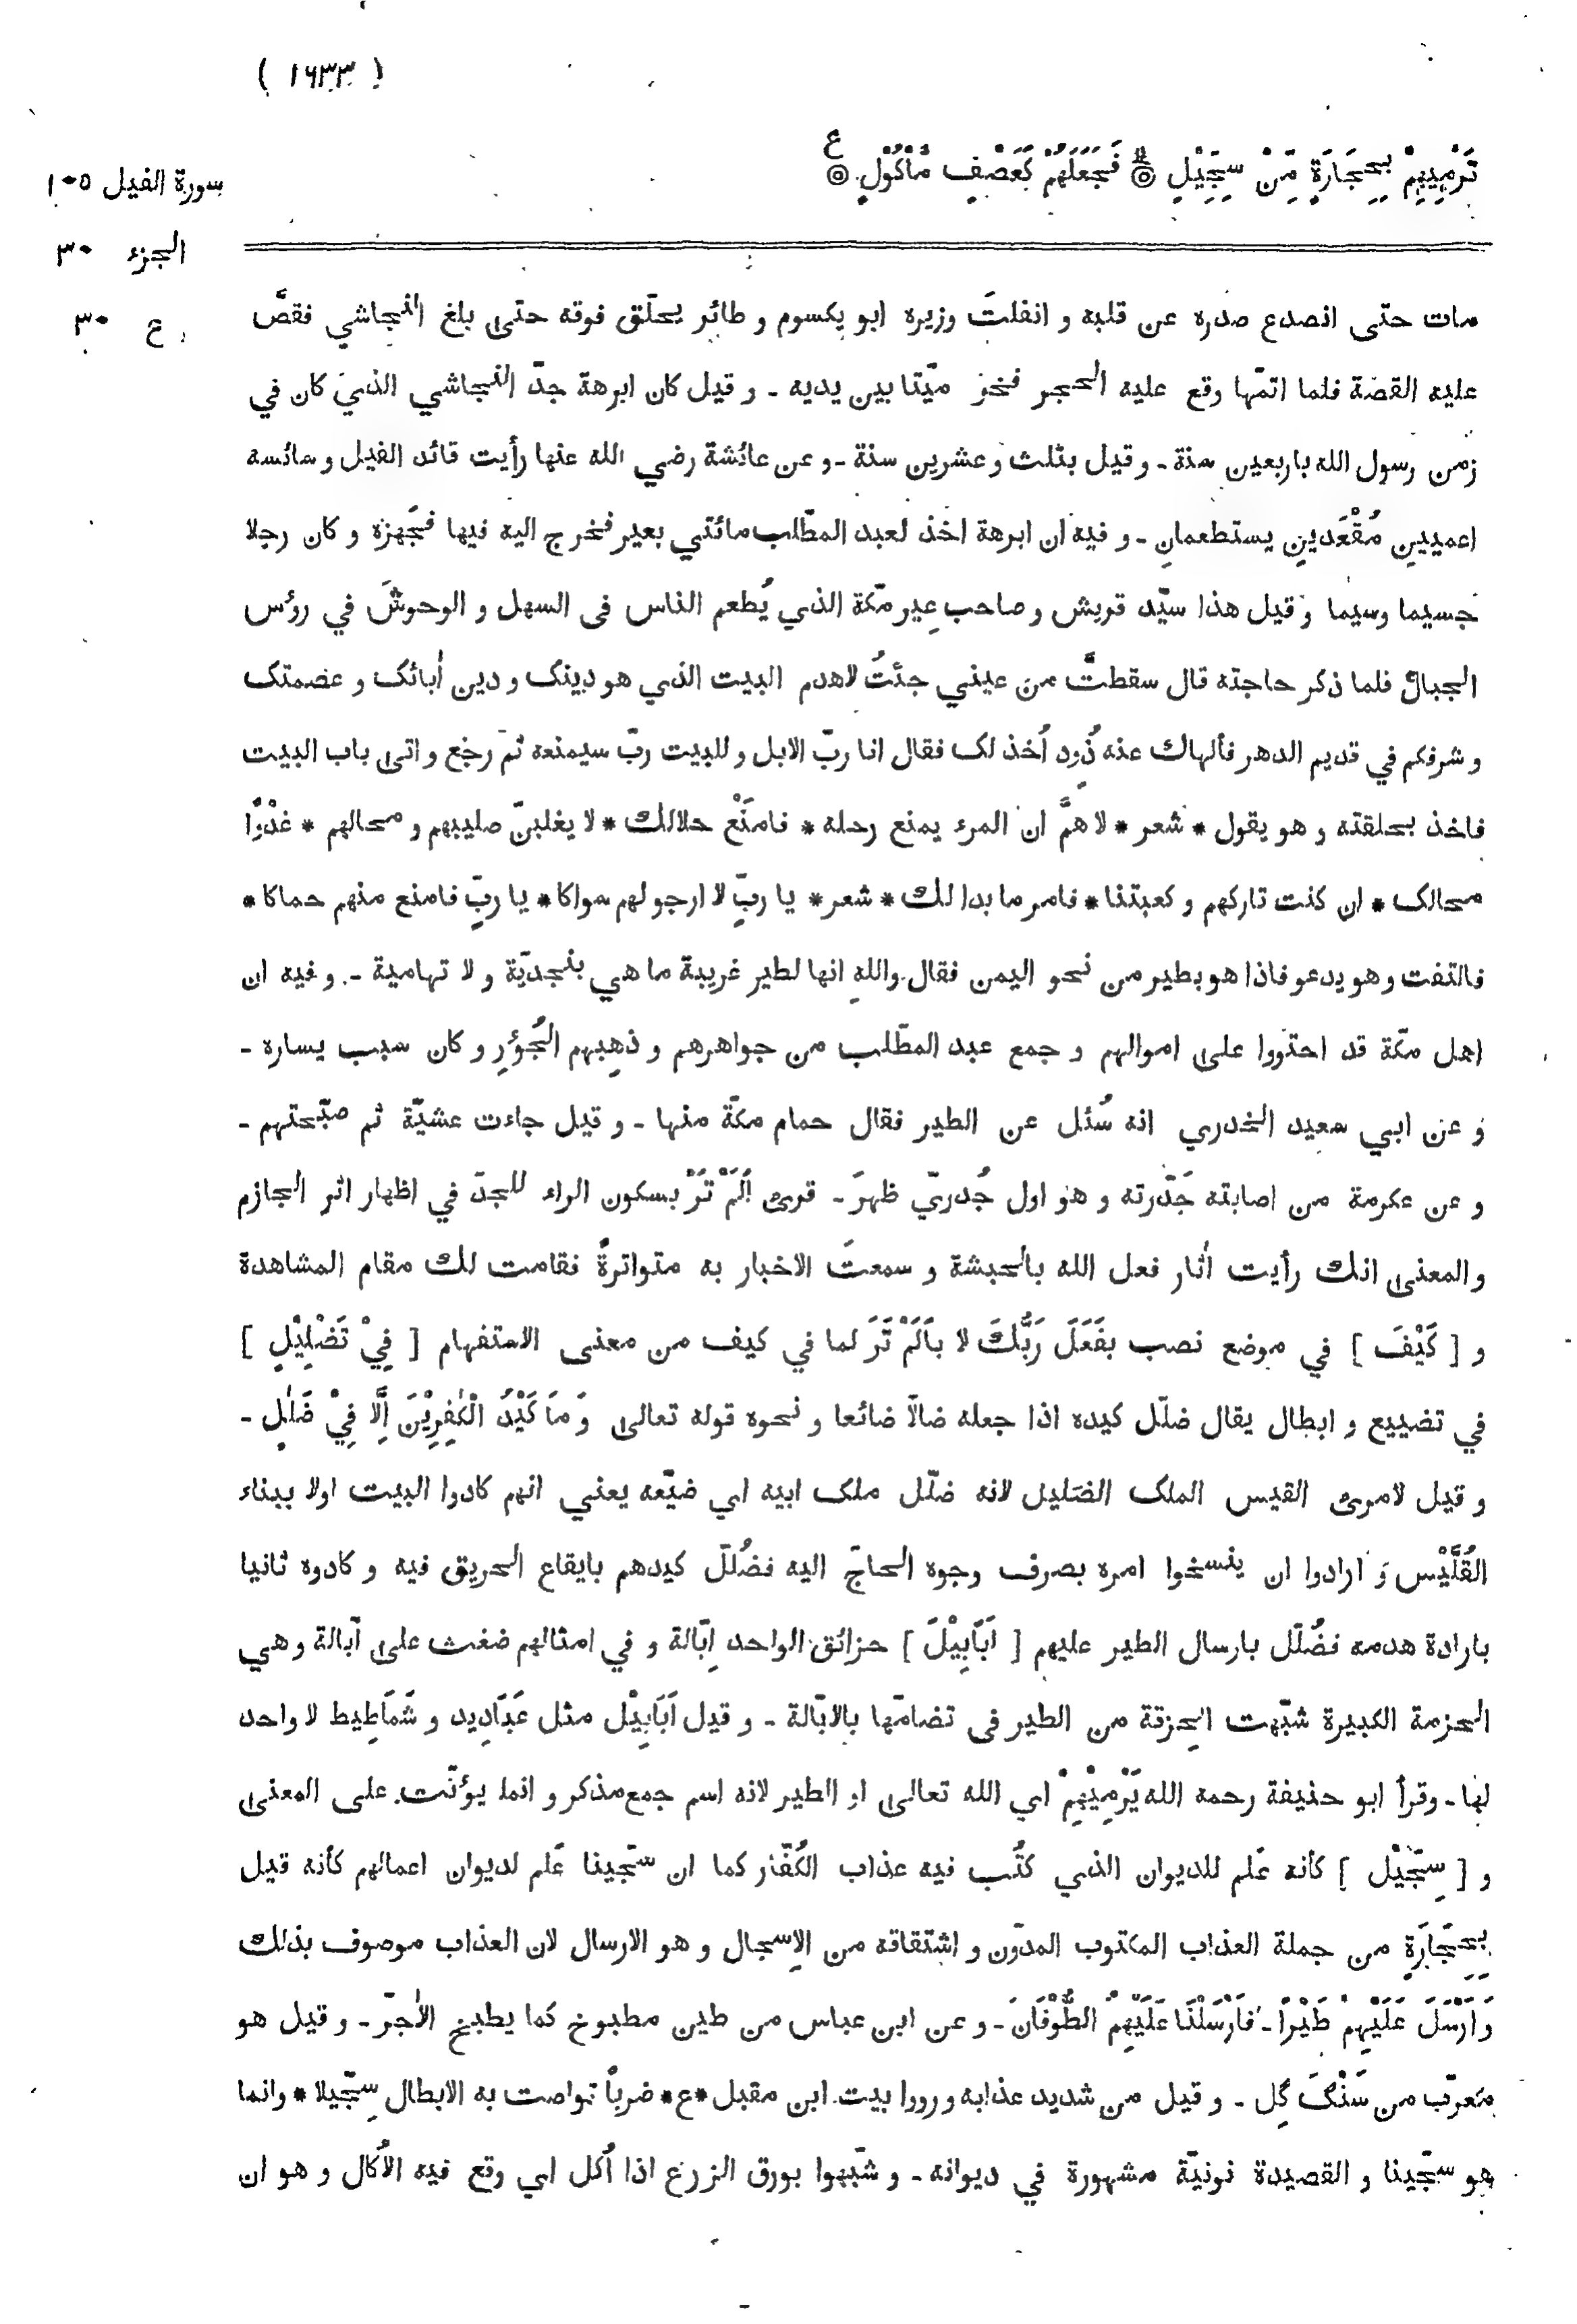 ( ١٦٣٣ )
سورة الفيل ١٠٥
الجزء ٣٠
ع ٣٠
تَرْمِيْهِمْ بِحِجَارَةٍ مِّنْ سِجِّيْلٍ ۞ فَجَعَلَهُمْ كَعَصْفٍ مَّأْكُوْلٍ ۞ ع
مات حتّى انصدع صدره عن قلبه و انفلتَ وزيره ابو يكسوم و طائر يحلّق فوقه حتى بلغ النجاشي فقصَّ
عليه القصّة فلما اتمّها وقع عليه الحجر فخرّ ميّتا بين يديه ـ و قيل كان ابرهة جدّ النجاشي الذي كان في
زمن رسول الله باربعين سنة ـ و قيل بثلث و عشرين سنة ـ و عن عائشة رضي الله عنها رأيت قائد الفيل و سائسه
اعميين مُقْعَدينِ يستطعمانِ ـ و فيه ان ابرهة اخذ لعبد المطّلب مائتي بعير فخرج اليه فيها فجَهزه و كان رجلا
جسيما وسيما و قيل هذا سيّد قريش و صاحب عِير مكّة الذي يُطعم الناس فى السهل و الوحوشَ في رؤس
الجبال فلما ذكر حاجته قال سقطتَّ من عيني جئتُ لاهدم البيت الذي هو دينك و دين أبائك و عصمتك
و شرفكم في قديم الدهر فألهاك عنه ذَود اُخذ لك فقال انا ربّ الابل و للبيت ربّ سيمنعه ثمّ رجع و اتى باب البيت
فاخذ بحلقته و هو يقول * شعر * لا هُمَّ ان المرء يمنع رحله * فامنَعْ حلالك * لا يغلبنّ صليبهم و محالهم * غدْوًا
محالك * ان كنت تاركهم و كعبتنا * فامر ما بدا لك * شعر * يا ربِّ لا ارجو لهم سواكا * يا ربِّ فامنع منهم حماكا *
فالتفت و هو يدعو فاذا هو بطير من نحو اليمن فقال واللهِ انها لطير غريبة ما هي بنجديّة و لا تهامية ـ و فيه ان
اهل مكّة قد احتووا على اموالهم و جمع عبد المطّلب من جواهرهم و ذهبهم الجُؤرِ و كان سبب يساره ـ
و عن ابي سعيد الخدري انه سُئل عن الطير فقال حمام مكّة منها ـ و قيل جاءت عشيّة ثم صبّحتهم ـ
و عن عكرمة من اصابته جَدّرته و هو اول جُدريّ ظهرَ ـ قرئ اَلَمْ تَرْ بسكون الراء للجدّ في اظهار اثر الجازم
والمعنى انك رأيت اٰثار فعل الله بالحبشة و سمعتَ الاخبار به متواترةً فقامت لك مقام المشاهدة
و [ كَيْفَ ] في موضع نصب بفَعَلَ رَبُّكَ لا باَلَمْ تَرَ لما في كيف من معنى الاستفهام [ فِيْ تَضْلِيْلٍ ]
في تضييع و ابطال يقال ضلّل كيده اذا جعله ضالّا ضائعا و نحوه قوله تعالى وَ مَا كَيْدُ الْكٰفِرِيْنَ اِلَّا فِيْ ضَلٰلٍ ـ
و قيل لامرئ القيس الملك الضليل لانه ضلّل ملك ابيه اي ضيّعه يعني انهم كادوا البيت اولا ببناء
القُلَّيْس وَ ارادوا ان ينسخوا امره بصرف وجوه الحاجّ اليه فضُلّل كيدهم بايقاع الحريق فيه و كادوه ثانيا
بارادة هدمه فضُلّل بارسال الطير عليهم [ اَبَابِيْلَ ] حزائق الواحد اِبّالة و في امثالهم ضغث على اَبالة و هي
الحزمة الكبيرة شبّهت الحِزقة من الطير فى تضامّها بالابّالة ـ و قيل اَبَابِيْل مثل عَبَادِيد و شَمَاطِيط لا واحد
لها ـ وقرأ ابو حنيفة رحمه الله يَرْمِيْهِمْ اي الله تعالى او الطير لانه اسم جمع مذكر و انما يؤنّث على المعنى
و [ سِجِّيْل ] كأنه عَلم للديوان الذي كُتُب فيه عذاب الكُفّار كما ان سجّينا عَلم لديوان اعمالهم كأنه قيل
بِحِجَارَةٍ من جملة العذاب المكتوب المدوّن و اشتقاقه من الاِسجال و هو الارسال لان العذاب موصوف بذلك
وَاَرْسَلَ عَلَيْهِمْ طَيْرًا ـ فَاَرْسَلْنَا عَلَيْهِمُ الطُّوْفَانَ ـ و عن ابن عباس من طين مطبوخ كما يطبخ الاٰجرّ ـ و قيل هو
معرّب من سَنْكَ گِل ـ و قيل من شديد عذابه و رووا بيت ابن مقبل *ع* ضرباً تواصت به الابطال سِجّيلا * وانما
هو سجّينا و القصيدة نونيّة مشهورة في ديوانه ـ و شبّهوا بورق الزرع اذا اُكل اي وقع فيه الاُكال و هو ان